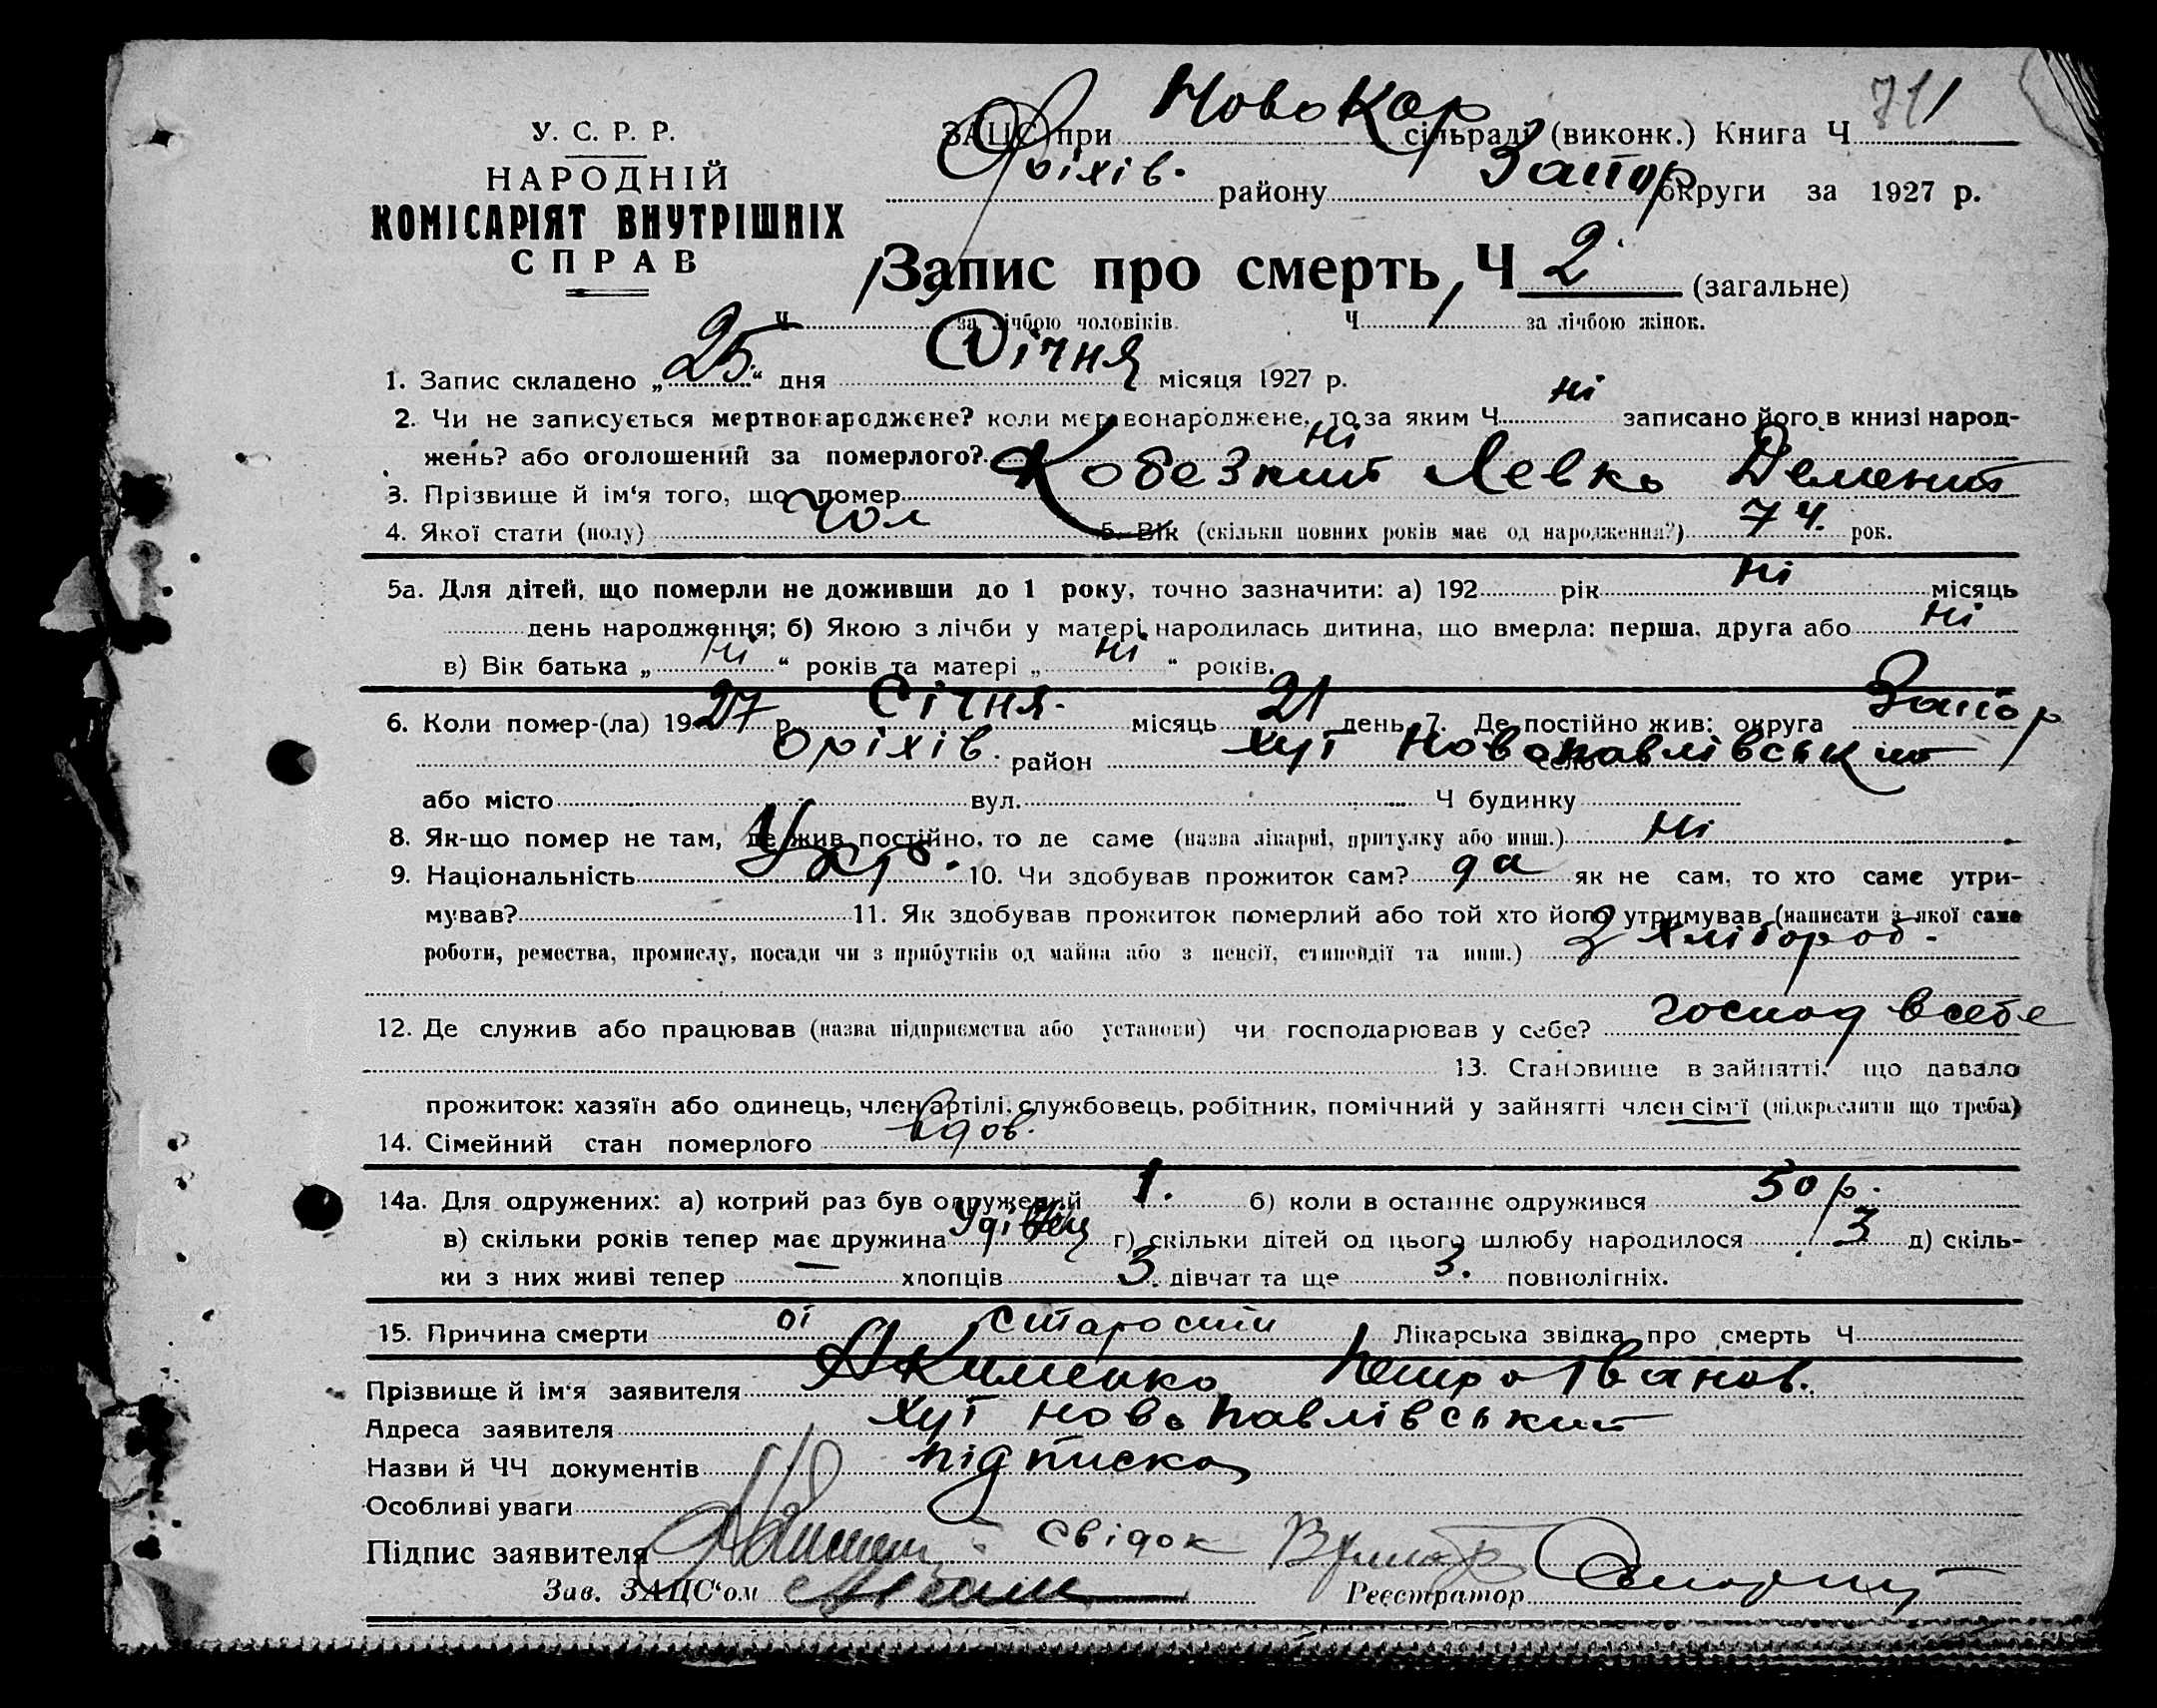 У. С. Р. Р.
НАРОДНІЙ
КОМІСАРІЯТ ВНУТРІШНІХ
СПРАВ
ЗАЦС при НовоКар сільраді (виконк.) Книга Ч
Оріхів. району Запор округи за 1927 р.
Запис про смерть, Ч 2 (загальне)
Ч за лічбою чоловіків. Ч за лічбою жінок.
1. Запис складено „25“ дня Січня місяця 1927 р.
2. Чи не записується мертвонароджене? коли мертвонароджене, то за яким Ч ні записано його в книзі народ-
жень? або оголошений за померлого? ні
3. Прізвище й ім'я того, що помер Кобезкий Левко Дементі
4. Якої стати (полу) чол 5. Вік (скільки повних років має од народження?) 74. рок.
5а. Для дітей, що померли не доживши до 1 року, точно зазначити: а) 192 рік ні місяць
день народження; б) Якою з лічби у матері народилась дитина, що вмерла: перша, друга або ні
в) Вік батька „ні“ років та матері „ні“ років.
6. Коли помер-(ла) 1927 р. Січня. місяць 21 день 7. Де постійно жив: округа Запор
Оріхів. район село хут Новопавлівський
або місто вул. Ч будинку
8. Як-що помер не там, де жив постійно, то де саме (назва лікарні, притулку або инш.) ні
9. Національність Укр. 10. Чи здобував прожиток сам? да як не сам, то хто саме утри-
мував? 11. Як здобував прожиток померлий або той хто його утримував (написати з якої саме
роботи, ремества, промислу, посади чи з прибутків од майна або з пенсії, стипендії та инш.) З хлібороб.
12. Де служив або працював (назва підприємства або установи) чи господарював у себе? господ в себе
13. Становище в зайнятті, що давало
прожиток: хазяїн або одинець, член артілі, службовець, робітник, помічний у зайнятті член сім'ї (підкреслити що треба)
14. Сімейний стан померлого вдов.
14а. Для одружених: а) котрий раз був одружений 1. б) коли в останнє одружився 50 р.
в) скільки років тепер має дружина удівец г) скільки дітей од цього шлюбу народилося 3 д) скіль-
ки з них живі тепер — хлопців 3. дівчат та ще 3. повнолітніх.
15. Причина смерти от старости Лікарська звідка про смерть Ч
Прізвище й ім'я заявителя Якименко Петро Іванов.
Адреса заявителя хут Ново Павлівський
Назви й ЧЧ документів підписка
Особливі уваги
Підпис заявителя свідок
Зав. ЗАЦС'ом Реєстратор